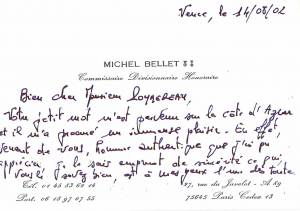 Vence, le 14/08/02
MICHEL BELLET
Commissaire Divisionnaire Honoraire
Bien cher Monsieur
Votre petit mot m'est parvenu sur la côte d'Azur
et il m'a procuré un immense plaisir. En effet
venant de vous, homme authentique que j'ai pu
apprécier, je le sais emprunt de sincérité ce qui,
vous le savez bien, est à mes yeux l'un des toute
Tél. 01 45 83 62 14
27, rue du Javelot - A 89
Port. 06 13 97 07 55
75645 Paris Cedex 13